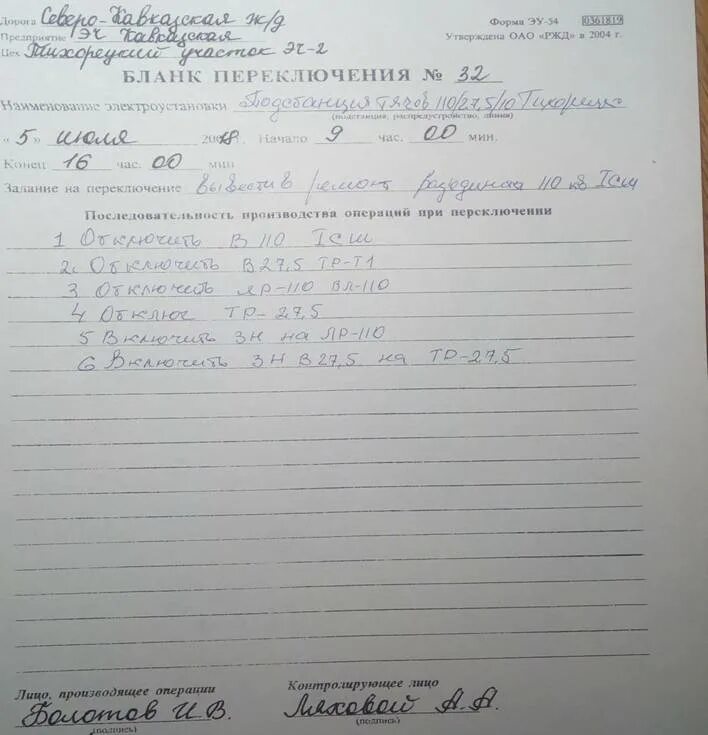 Дорога Северо-Кавказская ж/д Форма ЭУ-54 0361819
Предприятие ЭЧ Кавказская Утверждена ОАО «РЖД» в 2004 г.
Цех Тихорецкий участок ЭЧ-2
БЛАНК ПЕРЕКЛЮЧЕНИЯ № 32
Наименование электроустановки Подстанция 110/27,5/10 Тихорецк
(подстанция, распредустройство, линия)
« 5» июля 20 г. Начало 9 час. 00 мин.
Конец 16 час. 00 мин
Задание на переключение вывести в ремонт 110 кв IСШ
Последовательность производства операций при переключении
1 Отключить В 110 IСШ
2. Отключить В 27,5 ТР-Т1
3 Отключить ЛР-110 ВЛ-110
4 Отключ ТР- 27,5
5 Включить ЗН на ЛР-110
6 Включить ЗН В27,5 на ТР-27,5
Лицо, производящее операции Контролирующее лицо
Болотов И.В. Ляховой А.А.
(подпись) (подпись)